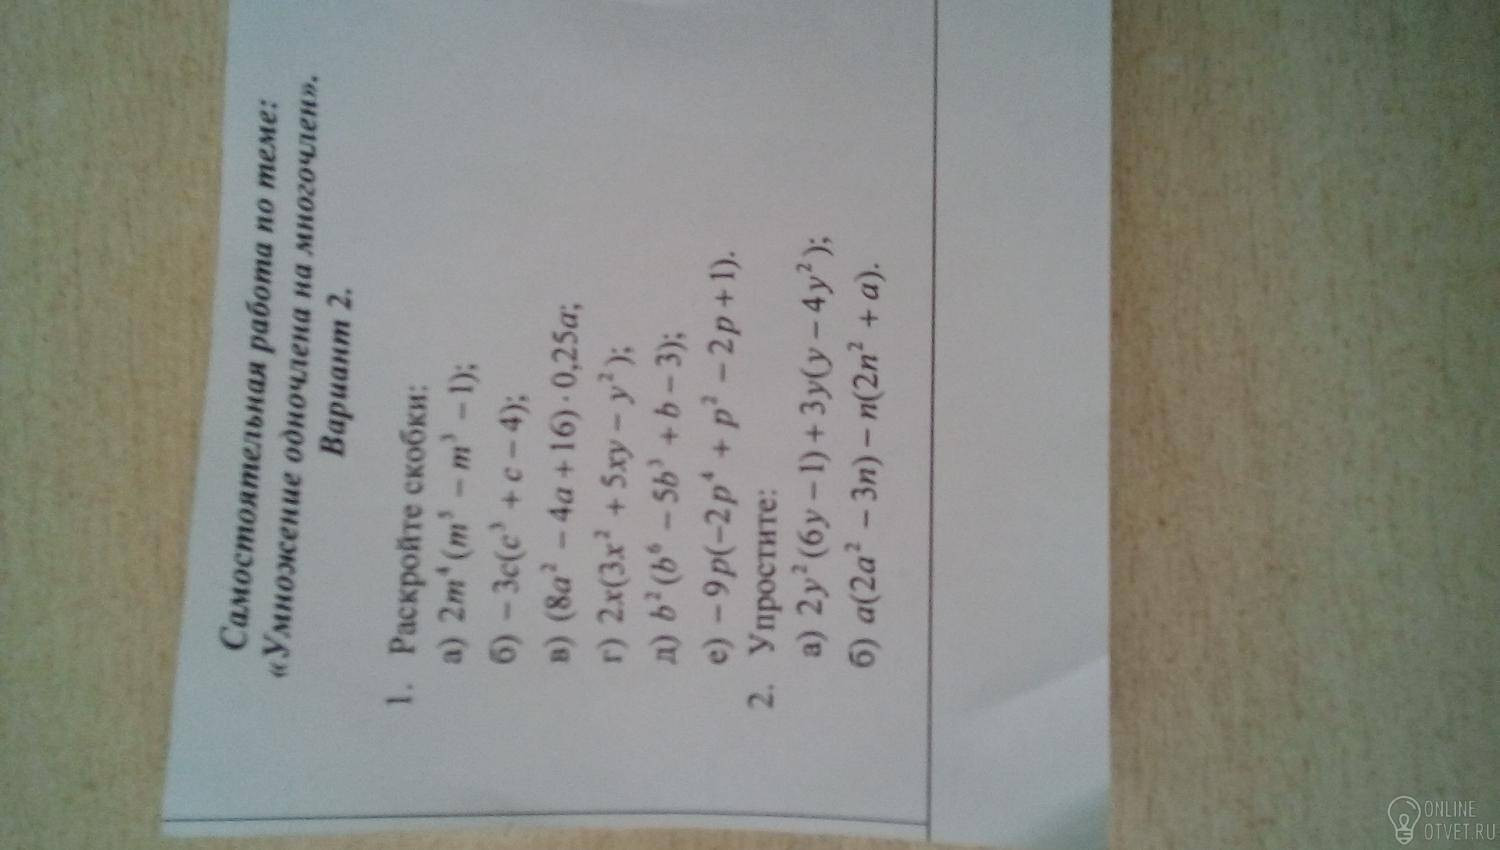 Самостоятельная работа по теме:
«Умножение одночлена на многочлен».
Вариант 2.
1. Раскройте скобки:
а) 2m⁴(m⁵ − m³ − 1);
б) − 3c(c³ + c − 4);
в) (8a² − 4a + 16) · 0,25a;
г) 2x(3x² + 5xy − y²);
д) b²(b⁶ − 5b³ + b − 3);
е) − 9p(−2p⁴ + p² − 2p + 1).
2. Упростите:
а) 2y²(6y − 1) + 3y(y − 4y²);
б) a(2a² − 3n) − n(2n² + a).
ONLINE
OTVET.RU